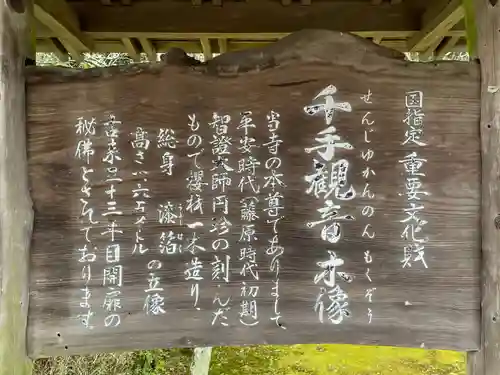 国指定 重要文化財
せんじゆかんのんもくぞう
千手観音木像
当寺の本尊でありまして
平安時代(藤原時代初期)
智證大師円珍の刻んだ
もので桜材一木造り、
総身漆箔の立像
高さ一六五メートル
吉来三十三年目開扉の
秘佛とされております